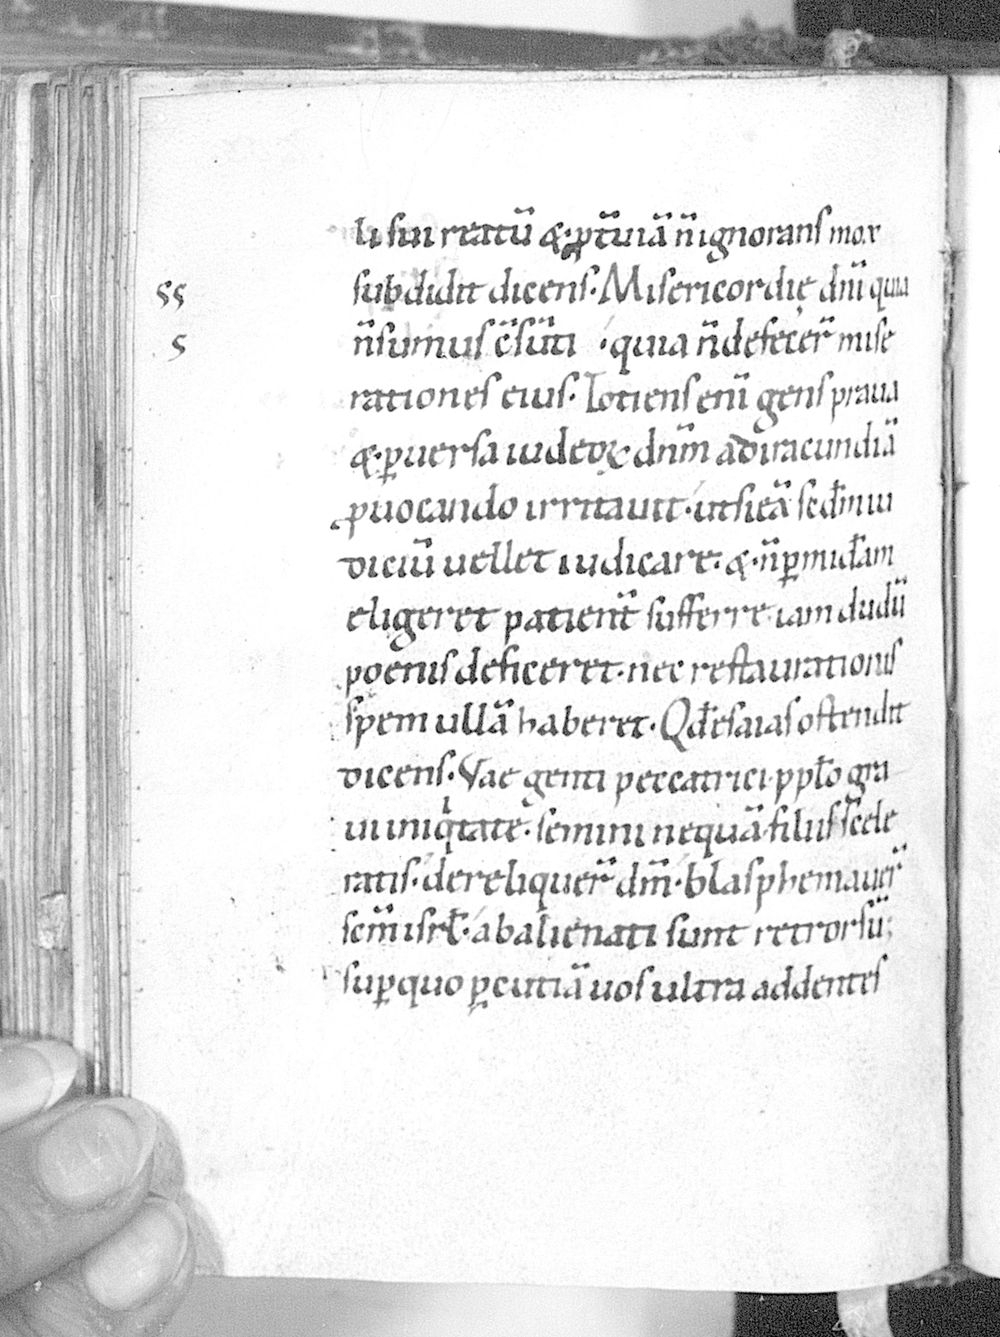 li sui reatū &̨ p̱t̄uiā n̄ ignorans mox
ss subdidit dicens· Misericordię dn̄i quia
s n̄ sumus c̄sūti · quia n̄ defecer̄ mise
rationes eius· Totiens enī gens praua
&̨ ꝑuersa iudeoꝝ dn̄m ad iracundiā
ꝓuocando irritauit· ut si eā scd̄m iu
diciū uellet iudicare· &̨ n̄ ꝑ mīam
eligeret patient̄ sufferre iam dudū
poenis deficeret· nec restaurationis
spem ullā haberet· Qđ esaias ostendit
dicens· Vae genti peccatrici· pplo gra
ui iniqͥtate· semini nequā· filiis scele
ratis· dereliquer̄ dn̄m· blasphemauer̄
scm̄ isrł· abalienati sunt retrorsū;
Suꝑ quo ꝑcutiā uos ultra addentes